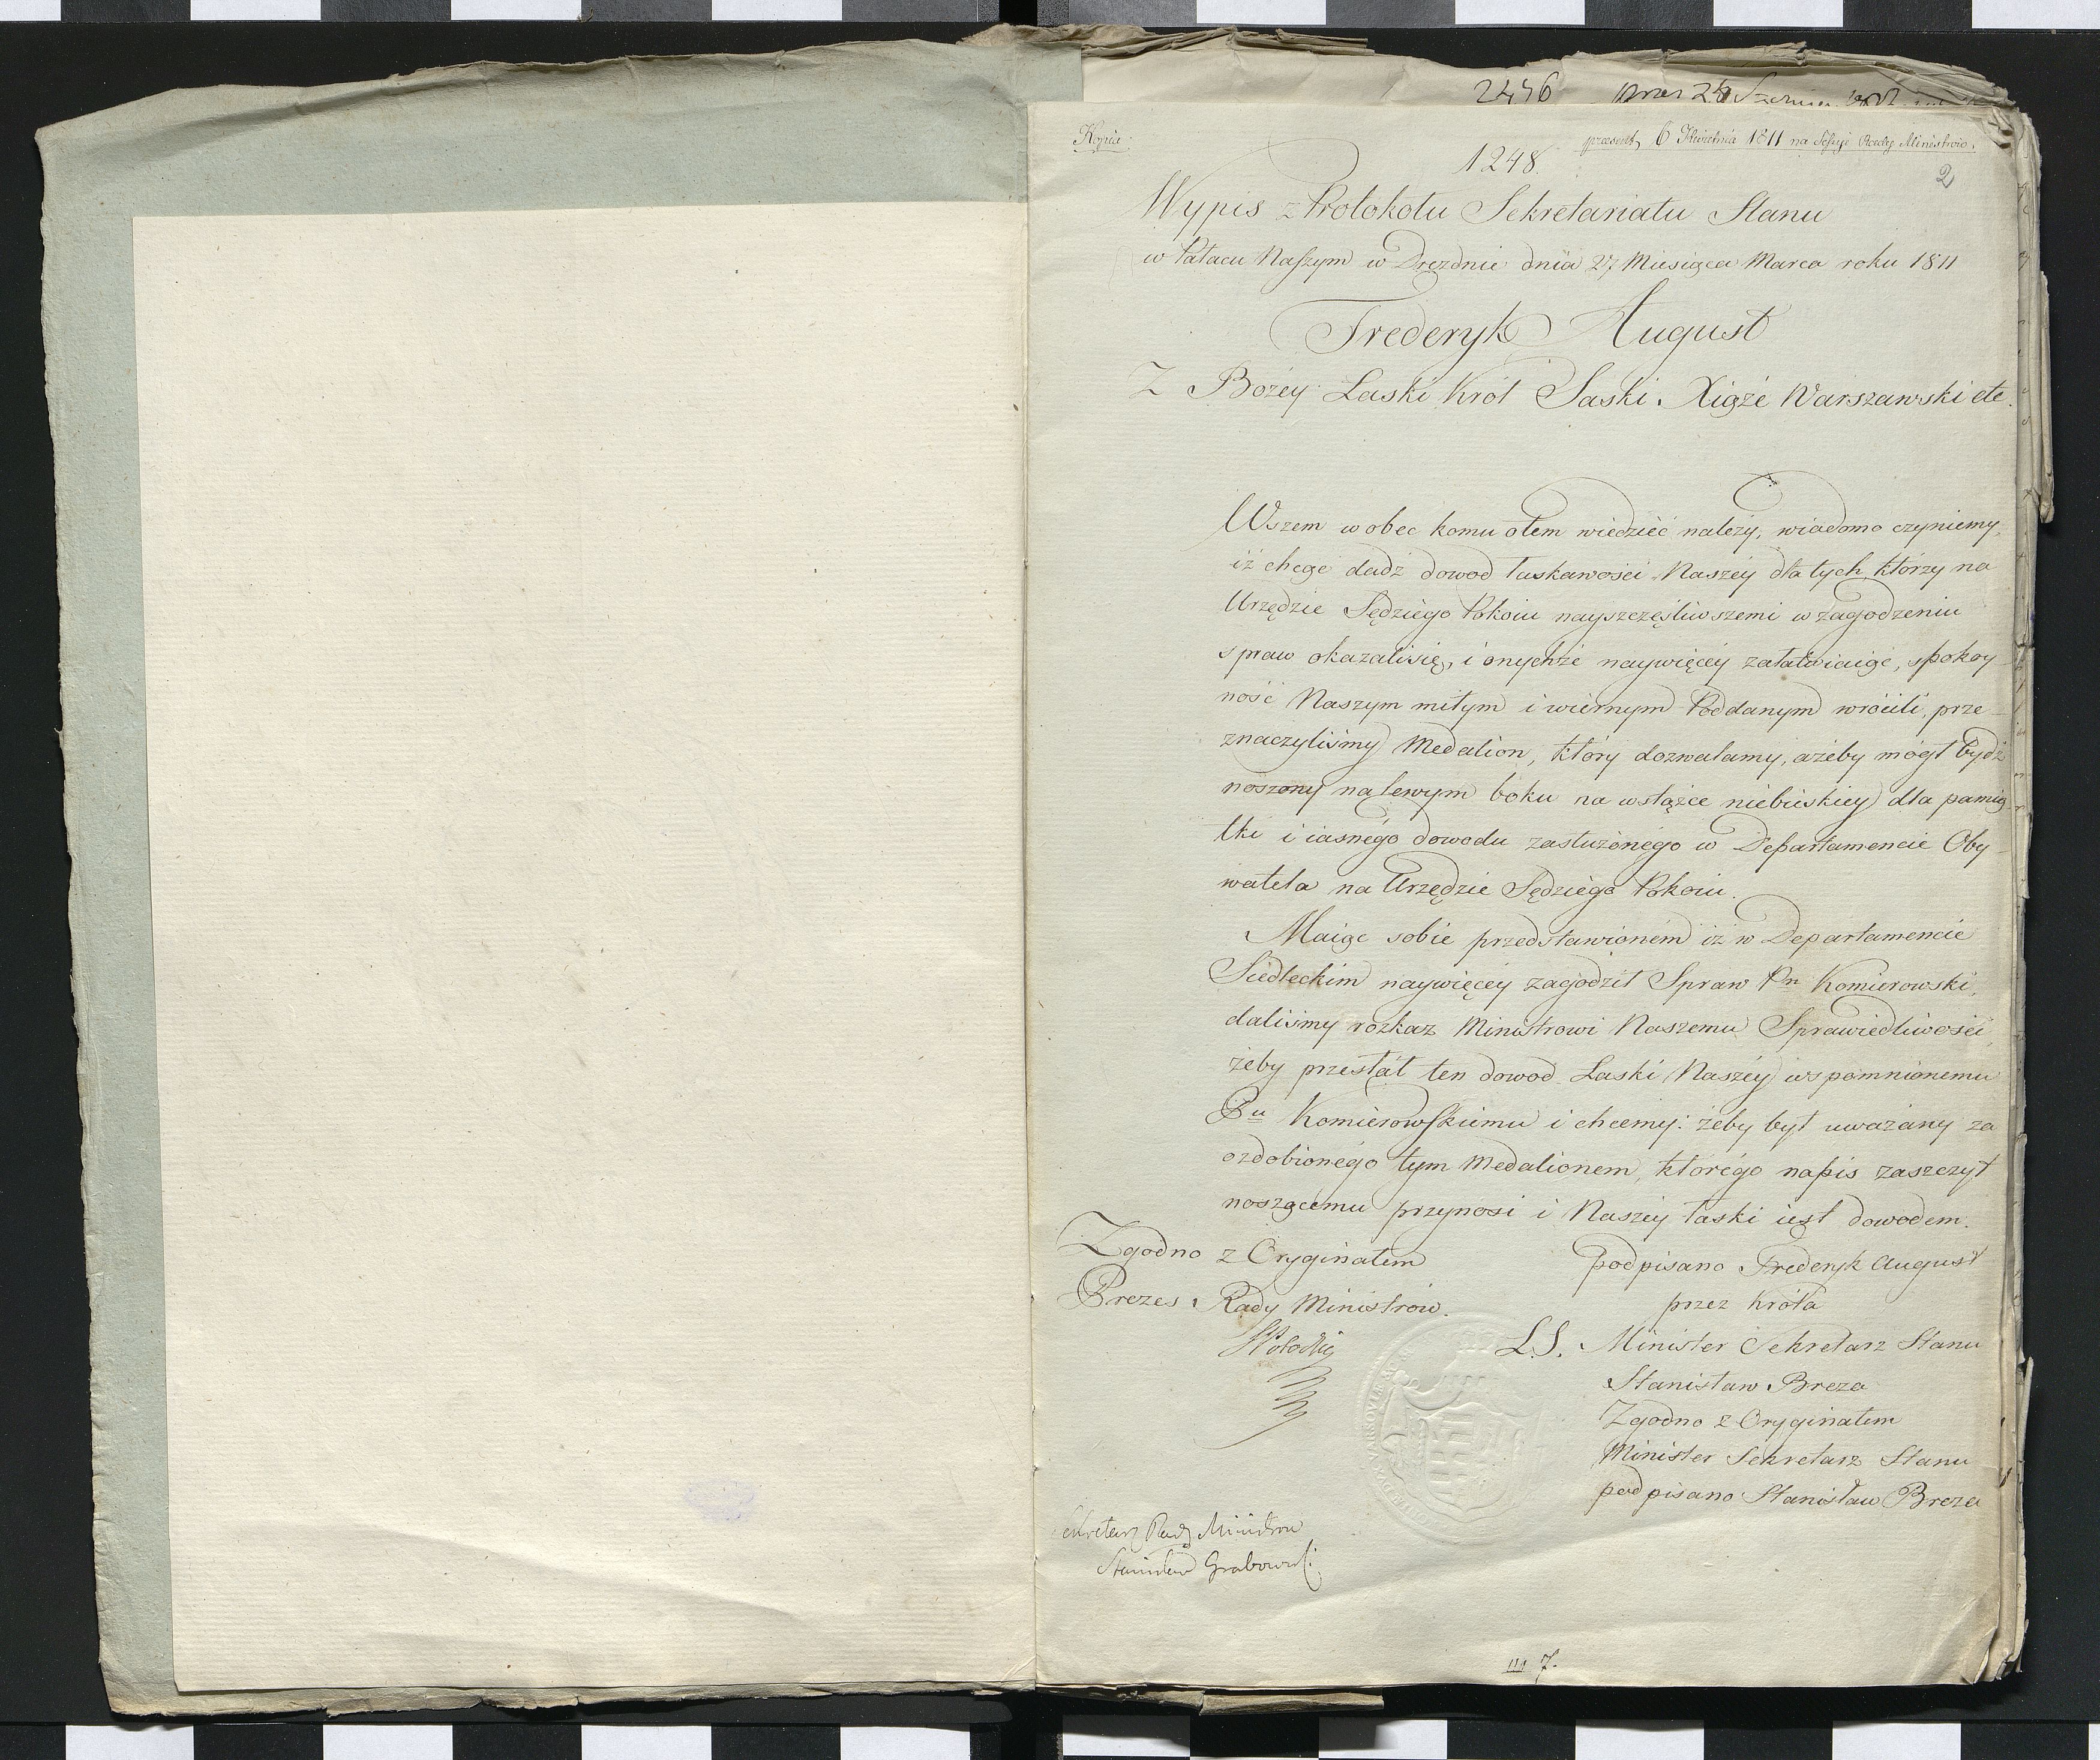 2446
Kopia
præsent, 6 Kwietnia 1811 na Sessyi Rady Ministrów.
1248.
2
Wypis z Protokołu Sekretariatu Stanu
w Pałacu Naszym w Dreznie dnia 27 Miesiąca Marca roku 1811
Frederyk August
Z Bożey Łaski Król Saski. Xiąże Warszawski etc.
Wszem w obec komu o tem wiedzieć należy, wiadomo czyniemy,
iż chcąc dadź dowod łaskawości Naszéy dla tych którzy na
Urzędzie Sędziego Pokoiu nayszczęśliwszemi w zagodzeniu
spraw okazali się, i onychże naywięcéy załatwiaiąc, spokoy-
ność Naszym miłym i wiernym Poddanym wrócili, prze-
znaczyliśmy Medalion, który dozwalamy, ażeby mógł bydź
noszony na lewym boku na wstążce niebieskiey dla pamią
tki i iasnégo dowodu zasłużonégo w Departamencie Oby-
watela na Urzędzie Sędziego Pokoiu.
Maiąc sobie przedstawionem iż w Departamencie
Siedleckim naywięcéy zagodził Spraw Pn Komierowski,
daliśmy rozkaz Ministrowi Naszemu Sprawiedliwości,
żeby przesłał ten dowod Łaski Naszéy wspomnionemu
Pu Komierowskiemu i chcemy: żeby był uważany za
ozdobionégo tym Medalionem, którégo napis zaszczyt
noszącemu przynosi i Naszéy łaski iest dowodem.
Zgodno z Oryginałem
podpisano Frederyk August
Prezes Rady Ministrów.
przez Króla
L.S. Minister Sekretarz Stanu
Stanisław Breza
Zgodno z Oryginałem
Minister Sekretarz Stanu
podpisano Stanisław Breza
Sekretarz Rady Ministrów
Stanisław Grabowski
7.